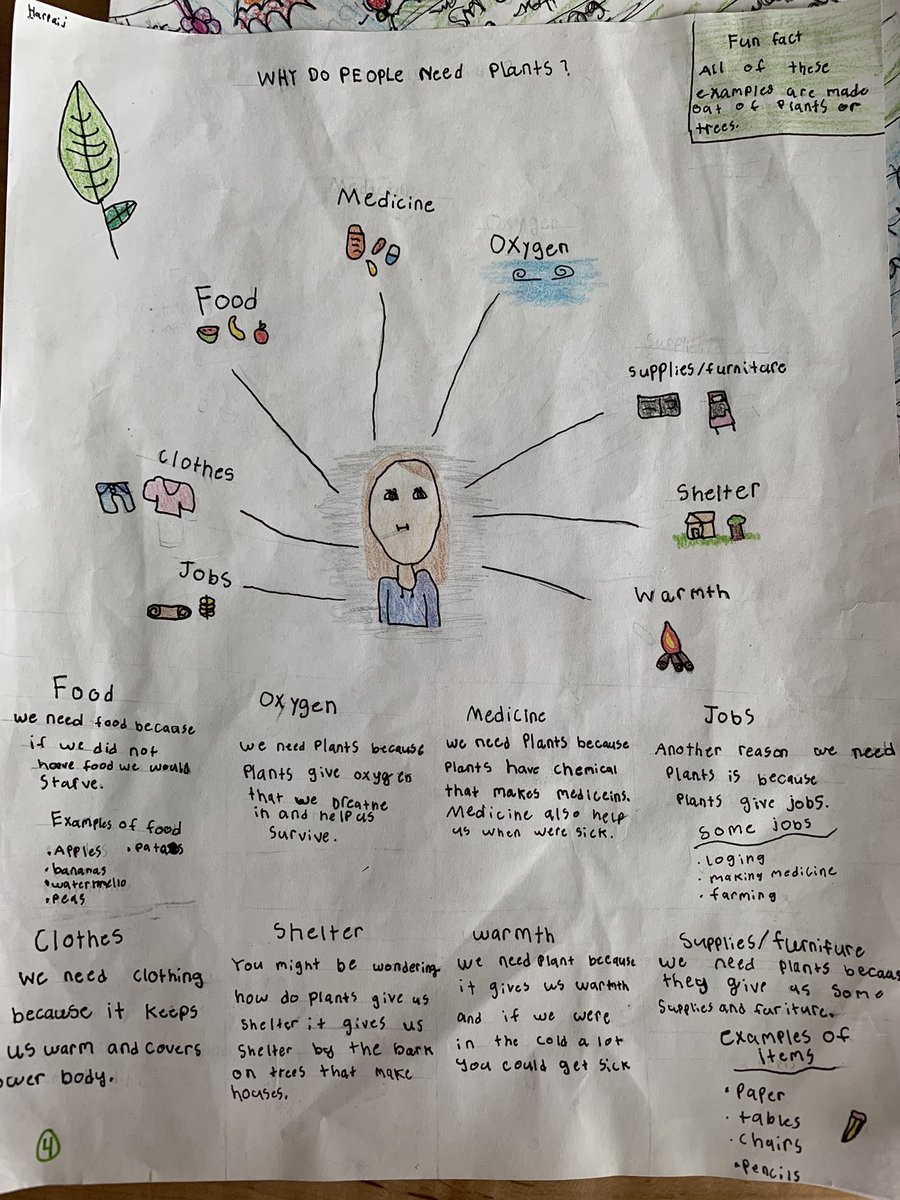 WHY DO PEOPLE Need Plants?
Fun fact
All of these
examples are made
out of plants or
trees.
Medicine
Oxygen
Food
supplies/furniture
Clothes
Shelter
Jobs
Warmth
Food
we need food because
if we did not
have food we would
starve.
Examples of food
• Apples
• bananas
• watermello
• Peas
Oxygen
we need Plants because
Plants give oxygen
that we breathe
in and help us
survive.
Medicine
we need Plants because
Plants have chemical
that makes mediceins.
Medicine also help
us when were sick.
Jobs
Another reason we need
Plants is because
Plants give jobs.
some jobs
• loging
• making medicine
• farming
Clothes
we need clothing
because it keeps
us warm and covers
ower body.
Shelter
You might be wondering
how do plants give us
shelter it gives us
shelter by the bark
on trees that make
houses.
warmth
we need Plant because
it gives us warmth
and if we were
in the cold a lot
You could get sick
Supplies/furniture
we need plants because
they give us some
supplies and furiture.
Examples of
items
• Paper
• tables
• Chairs
• Pencils
4